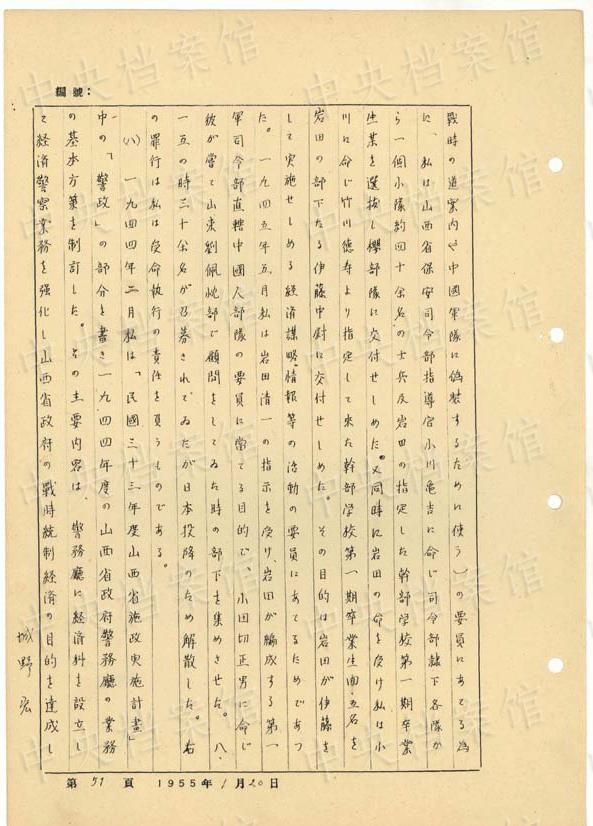 編號：
戰時の道案内や中國軍隊に偽装するために使う）の要員にあてる為
に、私は山西省保安司令部指導官小川亀吉に命じ司令部隷下各隊か
ら一個小隊約四十余名の士兵及岩田の指定した幹部学校第一期卒業
生某を選抜し櫻部隊に交付せしめた。又同時に岩田の命を受け私は小
川に命じ竹川德寿より指定して来た幹部学校第一期卒業生四、五名を
岩田の部下たる伊藤中尉に交付せしめた。その目的は岩田が伊藤を
して実施せしめる経済謀略、情報等の活動の要員にあてるためであつ
た。一九四五年五月私は岩田清一の指示を受け、岩田が編成する第一
軍司令部直轄中國人部隊の要員に當てる目的で、小田切正男に命じ
彼が嘗て山東劉佩忱部で顧問をしてゐた時の部下を集めさせた。八、
一五の時三十余名が召募されてゐたが日本投降のため解散した。右
の罪行は私は受命執行の責任を負うものである。
(八) 一九四四年二月私は「民國三十三年度山西省施政実施計畫」
中の「警政」の部分を書き一九四四年度の山西省政府警務廳の業務
の基本方策を制訂した。その主要内容は、警務廳に経済科を設立し
て経済警察業務を強化し山西省政府の戰時統制経済の目的を達成し
城野宏
第 51 頁 1955年 1月 20日
中央档案馆